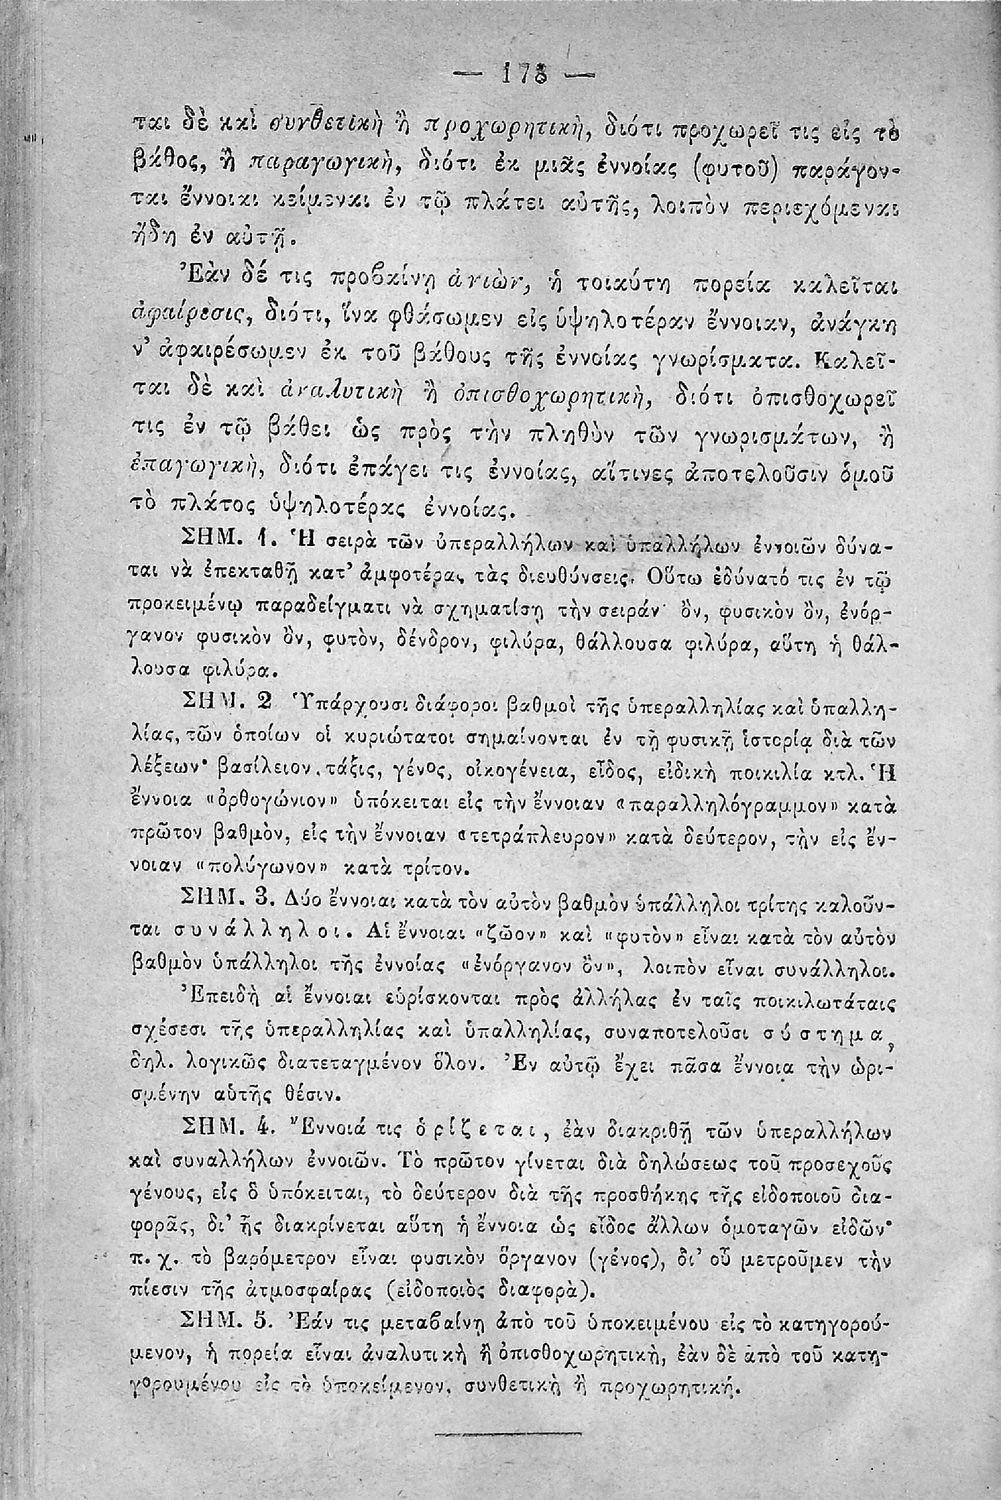 — 178 —
ται δὲ καὶ συνθετικὴ ἢ προχωρητικὴ, διότι προχωρεῖ τις εἰς τὸ
βάθος, ἢ παραγωγικὴ, διότι ἐκ μιᾶς ἐννοίας (φυτοῦ) παράγον-
ται ἔννοιαι κείμεναι ἐν τῷ πλάτει αὐτῆς, λοιπὸν περιεχόμεναι
ἤδη ἐν αὐτῇ.
Ἐὰν δέ τις προβαίνῃ ἀνιὼν, ἡ τοιαύτη πορεία καλεῖται
ἀφαίρεσις, διότι, ἵνα φθάσωμεν εἰς ὑψηλοτέραν ἔννοιαν, ἀνάγκη
ν’ ἀφαιρέσωμεν ἐκ τοῦ βάθους τῆς ἐννοίας γνωρίσματα. Καλεῖ-
ται δὲ καὶ ἀναλυτικὴ ἢ ὀπισθοχωρητικὴ, διότι ὀπισθοχωρεῖ
τις ἐν τῷ βάθει ὡς πρὸς τὴν πληθὺν τῶν γνωρισμάτων, ἢ
ἐπαγωγικὴ, διότι ἐπάγει τις ἐννοίας, αἵτινες ἀποτελοῦσιν ὁμοῦ
τὸ πλάτος ὑψηλοτέρας ἐννοίας.
ΣΗΜ. 1. Ἡ σειρὰ τῶν ὑπεραλλήλων καὶ ὑπαλλήλων ἐννοιῶν δύνα-
ται νὰ ἐπεκταθῇ κατ’ ἀμφοτέρας τὰς διευθύνσεις. Οὕτω ἐδύνατό τις ἐν τῷ
προκειμένῳ παραδείγματι νὰ σχηματίσῃ τὴν σειράν· ὂν, φυσικὸν ὂν, ἐνόρ-
γανον φυσικὸν ὂν, φυτὸν, δένδρον, φιλύρα, θάλλουσα φιλύρα, αὕτη ἡ θάλ-
λουσα φιλύρα.
ΣΗΜ. 2 Ὑπάρχουσι διάφοροι βαθμοὶ τῆς ὑπεραλληλίας καὶ ὑπαλλη-
λίας, τῶν ὁποίων οἱ κυριώτατοι σημαίνονται ἐν τῇ φυσικῇ ἱστορίᾳ διὰ τῶν
λέξεων· βασίλειον, τάξις, γένος, οἰκογένεια, εἶδος, εἰδικὴ ποικιλία κτλ. Ἡ
ἔννοια «ὀρθογώνιον» ὑπόκειται εἰς τὴν ἔννοιαν «παραλληλόγραμμον» κατὰ
πρῶτον βαθμὸν, εἰς τὴν ἔννοιαν «τετράπλευρον» κατὰ δεύτερον, τὴν εἰς ἔν-
νοιαν «πολύγωνον» κατὰ τρίτον.
ΣΗΜ. 3. Δύο ἔννοιαι κατὰ τὸν αὐτὸν βαθμὸν ὑπάλληλοι τρίτης καλοῦν-
ται συνάλληλοι. Αἱ ἔννοιαι «ζῶον» καὶ «φυτὸν» εἶναι κατὰ τὸν αὐτὸν
βαθμὸν ὑπάλληλοι τῆς ἐννοίας «ἐνόργανον ὂν», λοιπὸν εἶναι συνάλληλοι.
Ἐπειδὴ αἱ ἔννοιαι εὑρίσκονται πρὸς ἀλλήλας ἐν ταῖς ποικιλωτάταις
σχέσεσι τῆς ὑπεραλληλίας καὶ ὑπαλληλίας, συναποτελοῦσι σύστημα,
δηλ. λογικῶς διατεταγμένον ὅλον. Ἐν αὐτῷ ἔχει πᾶσα ἔννοια τὴν ὡρι-
σμένην αὑτῆς θέσιν.
ΣΗΜ. 4. Ἔννοιά τις ὁρίζεται, ἐὰν διακριθῇ τῶν ὑπεραλλήλων
καὶ συναλλήλων ἐννοιῶν. Τὸ πρῶτον γίνεται διὰ δηλώσεως τοῦ προσεχοῦς
γένους, εἰς ὃ ὑπόκειται, τὸ δεύτερον διὰ τῆς προσθήκης τῆς εἰδοποιοῦ δια-
φορᾶς, δι’ ἧς διακρίνεται αὕτη ἡ ἔννοια ὡς εἶδος ἄλλων ὁμοταγῶν εἰδῶν·
π. χ. τὸ βαρόμετρον εἶναι φυσικὸν ὄργανον (γένος), δι’ οὗ μετροῦμεν τὴν
πίεσιν τῆς ἀτμοσφαίρας (εἰδοποιὸς διαφορὰ).
ΣΗΜ. 5. Ἐάν τις μεταβαίνῃ ἀπὸ τοῦ ὑποκειμένου εἰς τὸ κατηγορού-
μενον, ἡ πορεία εἶναι ἀναλυτικὴ ἢ ὀπισθοχωρητικὴ, ἐὰν δὲ ἀπὸ τοῦ κατη-
γορουμένου εἰς τὸ ὑποκείμενον, συνθετικὴ ἢ προχωρητική.